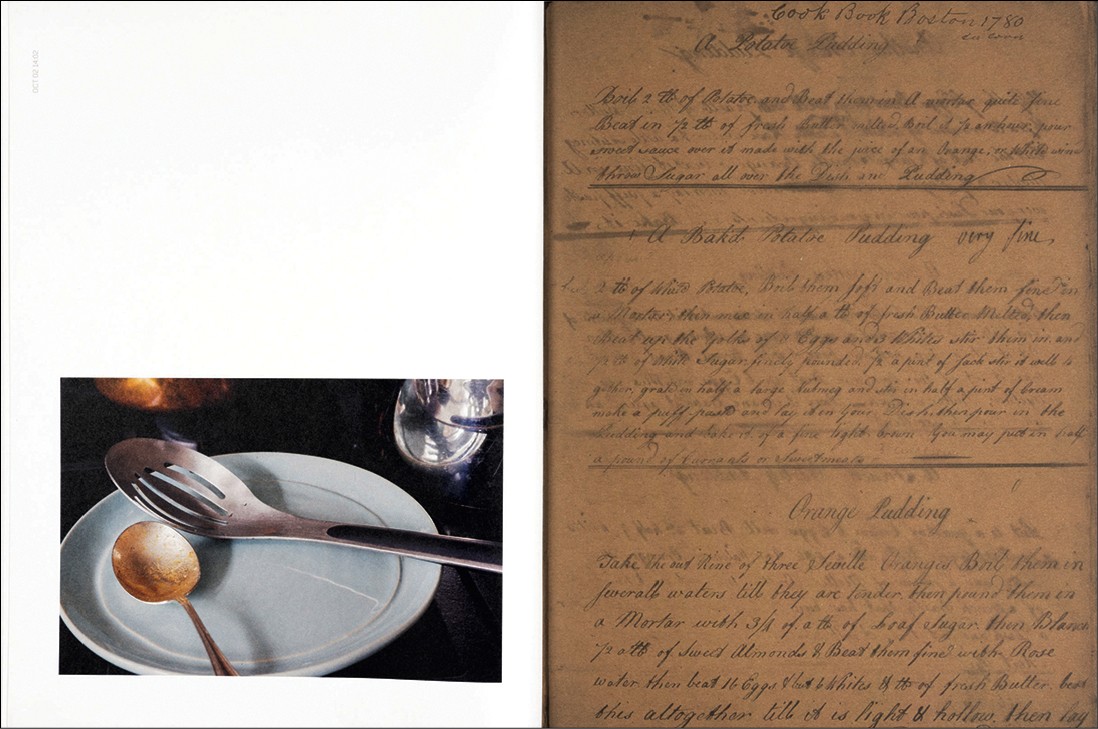 OCT 02 14:02
Cook Book Boston 1780
A Potatoe Pudding
Boil 2 lb of Potatoe and Beat them in A mortar quite fine
Beat in 1/2 lb of fresh Butter melted, Boil it 1/2 an hour, pour
sweet sauce over it made with the juice of an Orange, or White wine
throw Sugar all over the Dish and Pudding
A Bak'd Potatoe Pudding very fine,
2 lb of White Potatoe, Boil them soft and Beat them fine in
a Mortar, then mix in half a lb of fresh Butter Melted, then
Beat up the Yolks of 8 Eggs and 3 Whites stir them in and
1/2 lb of White Sugar finely pounded 1/2 a pint of Sack stir it well to
gether, grate in half a large Nutmeg and stir in half a pint of Cream
make a puff paste and lay it on Your Dish, then pour in the
Pudding and Bake it of a fine light brown You may put in half
a pound of Currants or Sweetmeats
Orange Pudding
Take the out Rine of three Seville Oranges Boil them in
severall waters till they are tender, then pound them in
a Mortar with 3/4 of a lb of Loaf Sugar then Blanch
1/2 a lb of Sweet Almonds & Beat them fine with Rose
water then beat 16 Eggs & but 6 Whites & lb of fresh Butter beat
this altogether till it is light & hollow, then lay